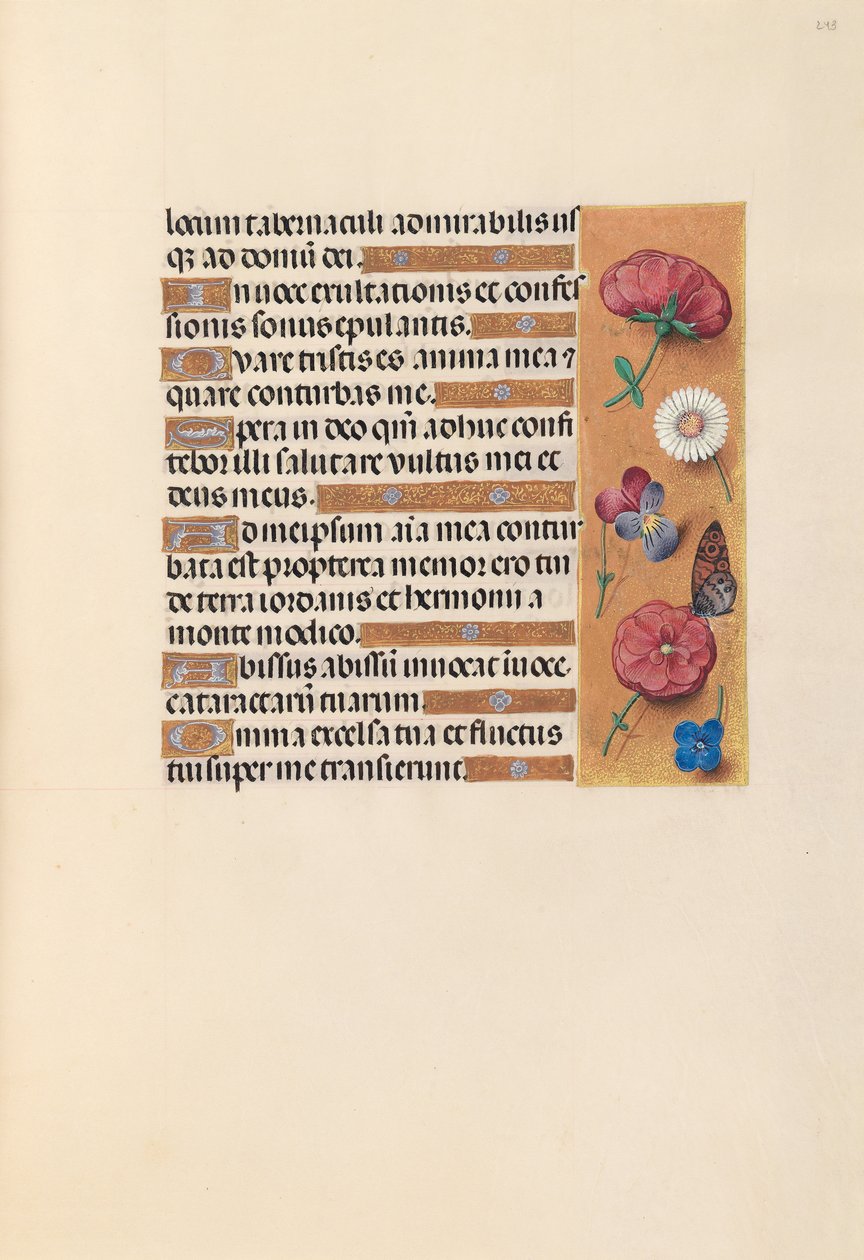 243
locum tabernaculi admirabilis us
qȝ ad domū dei.
In uoce exultationis et confes
sionis sonus epulantis.
Quare tristis es anima mea ⁊
quare conturbas me.
Spera in deo qm̄ adhuc confi
tebor illi salutare vultus mei et
deus meus.
Ad meipsum aīa mea contur
bata est propterea memor ero tui
de terra iordanis et hermonii a
monte modico.
Abissus abissū inuocat ī uoce
cataractarū tuarum.
Omnia excelsa tua et fluctus
tui super me transierunt.